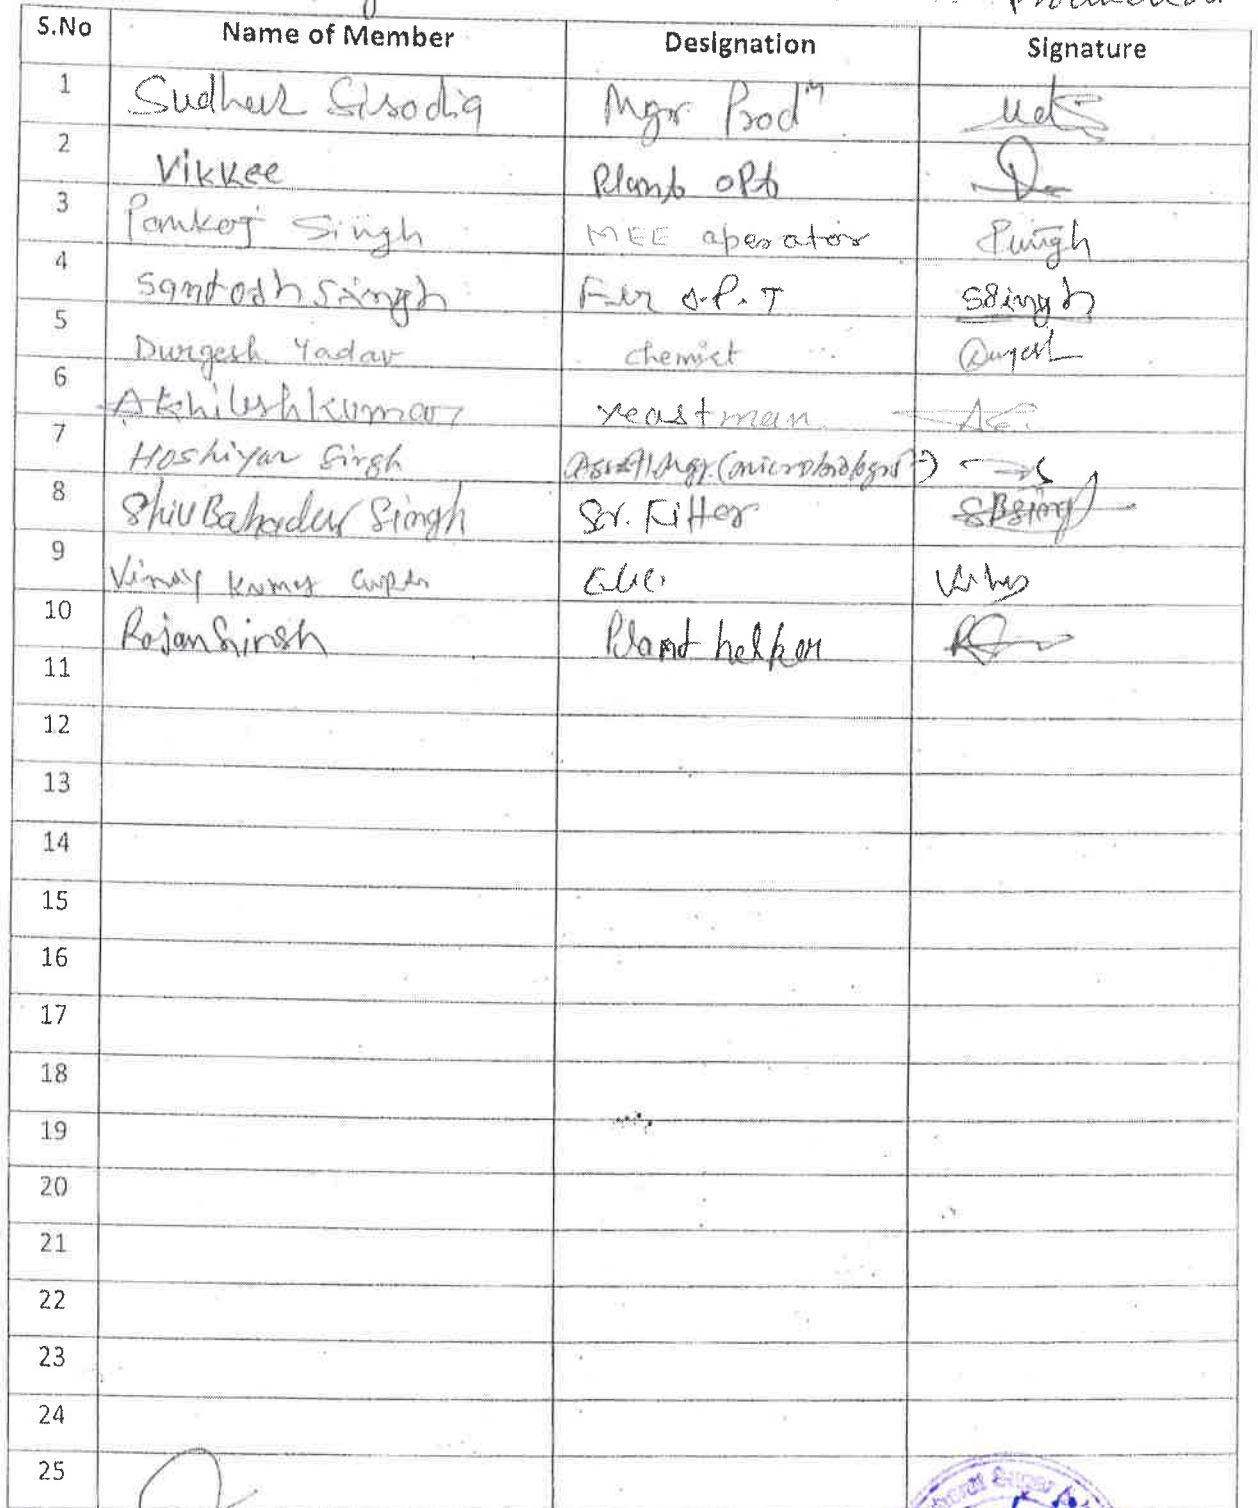 Production
S.No Name of Member Designation Signature
1 Sudheer Sisodia Mgr Prodⁿ
2 Vikkee Plant opt
3 Pankaj Singh MEE aperator Psingh
4 Santosh Singh Fer O.P.T SSingh
5 Durgesh Yadav chemist Durgesh
6 Akhilesh kumar yeastman AK
7 Hoshiyar Singh Asstt Mgr. (microbiologist)
8 Shiv Bahadur Singh Sr. Fitter SBsing
9 Vinay kumar Gupta Elec.
10 Rajan Singh Plant helper
11
12
13
14
15
16
17
18
19
20
21
22
23
24
25